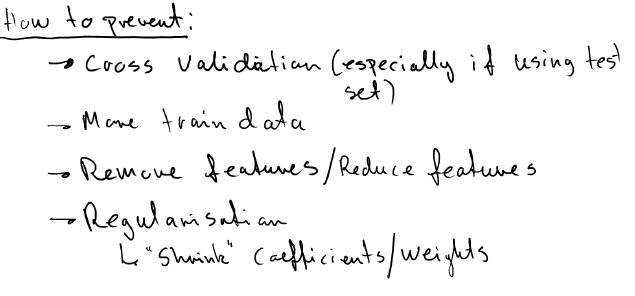 How to prevent:
→ Cross Validation (especially if using test
set)
→ More train data
→ Remove features/Reduce features
→ Regularisation
↳ "Shrink" Coefficients/weights